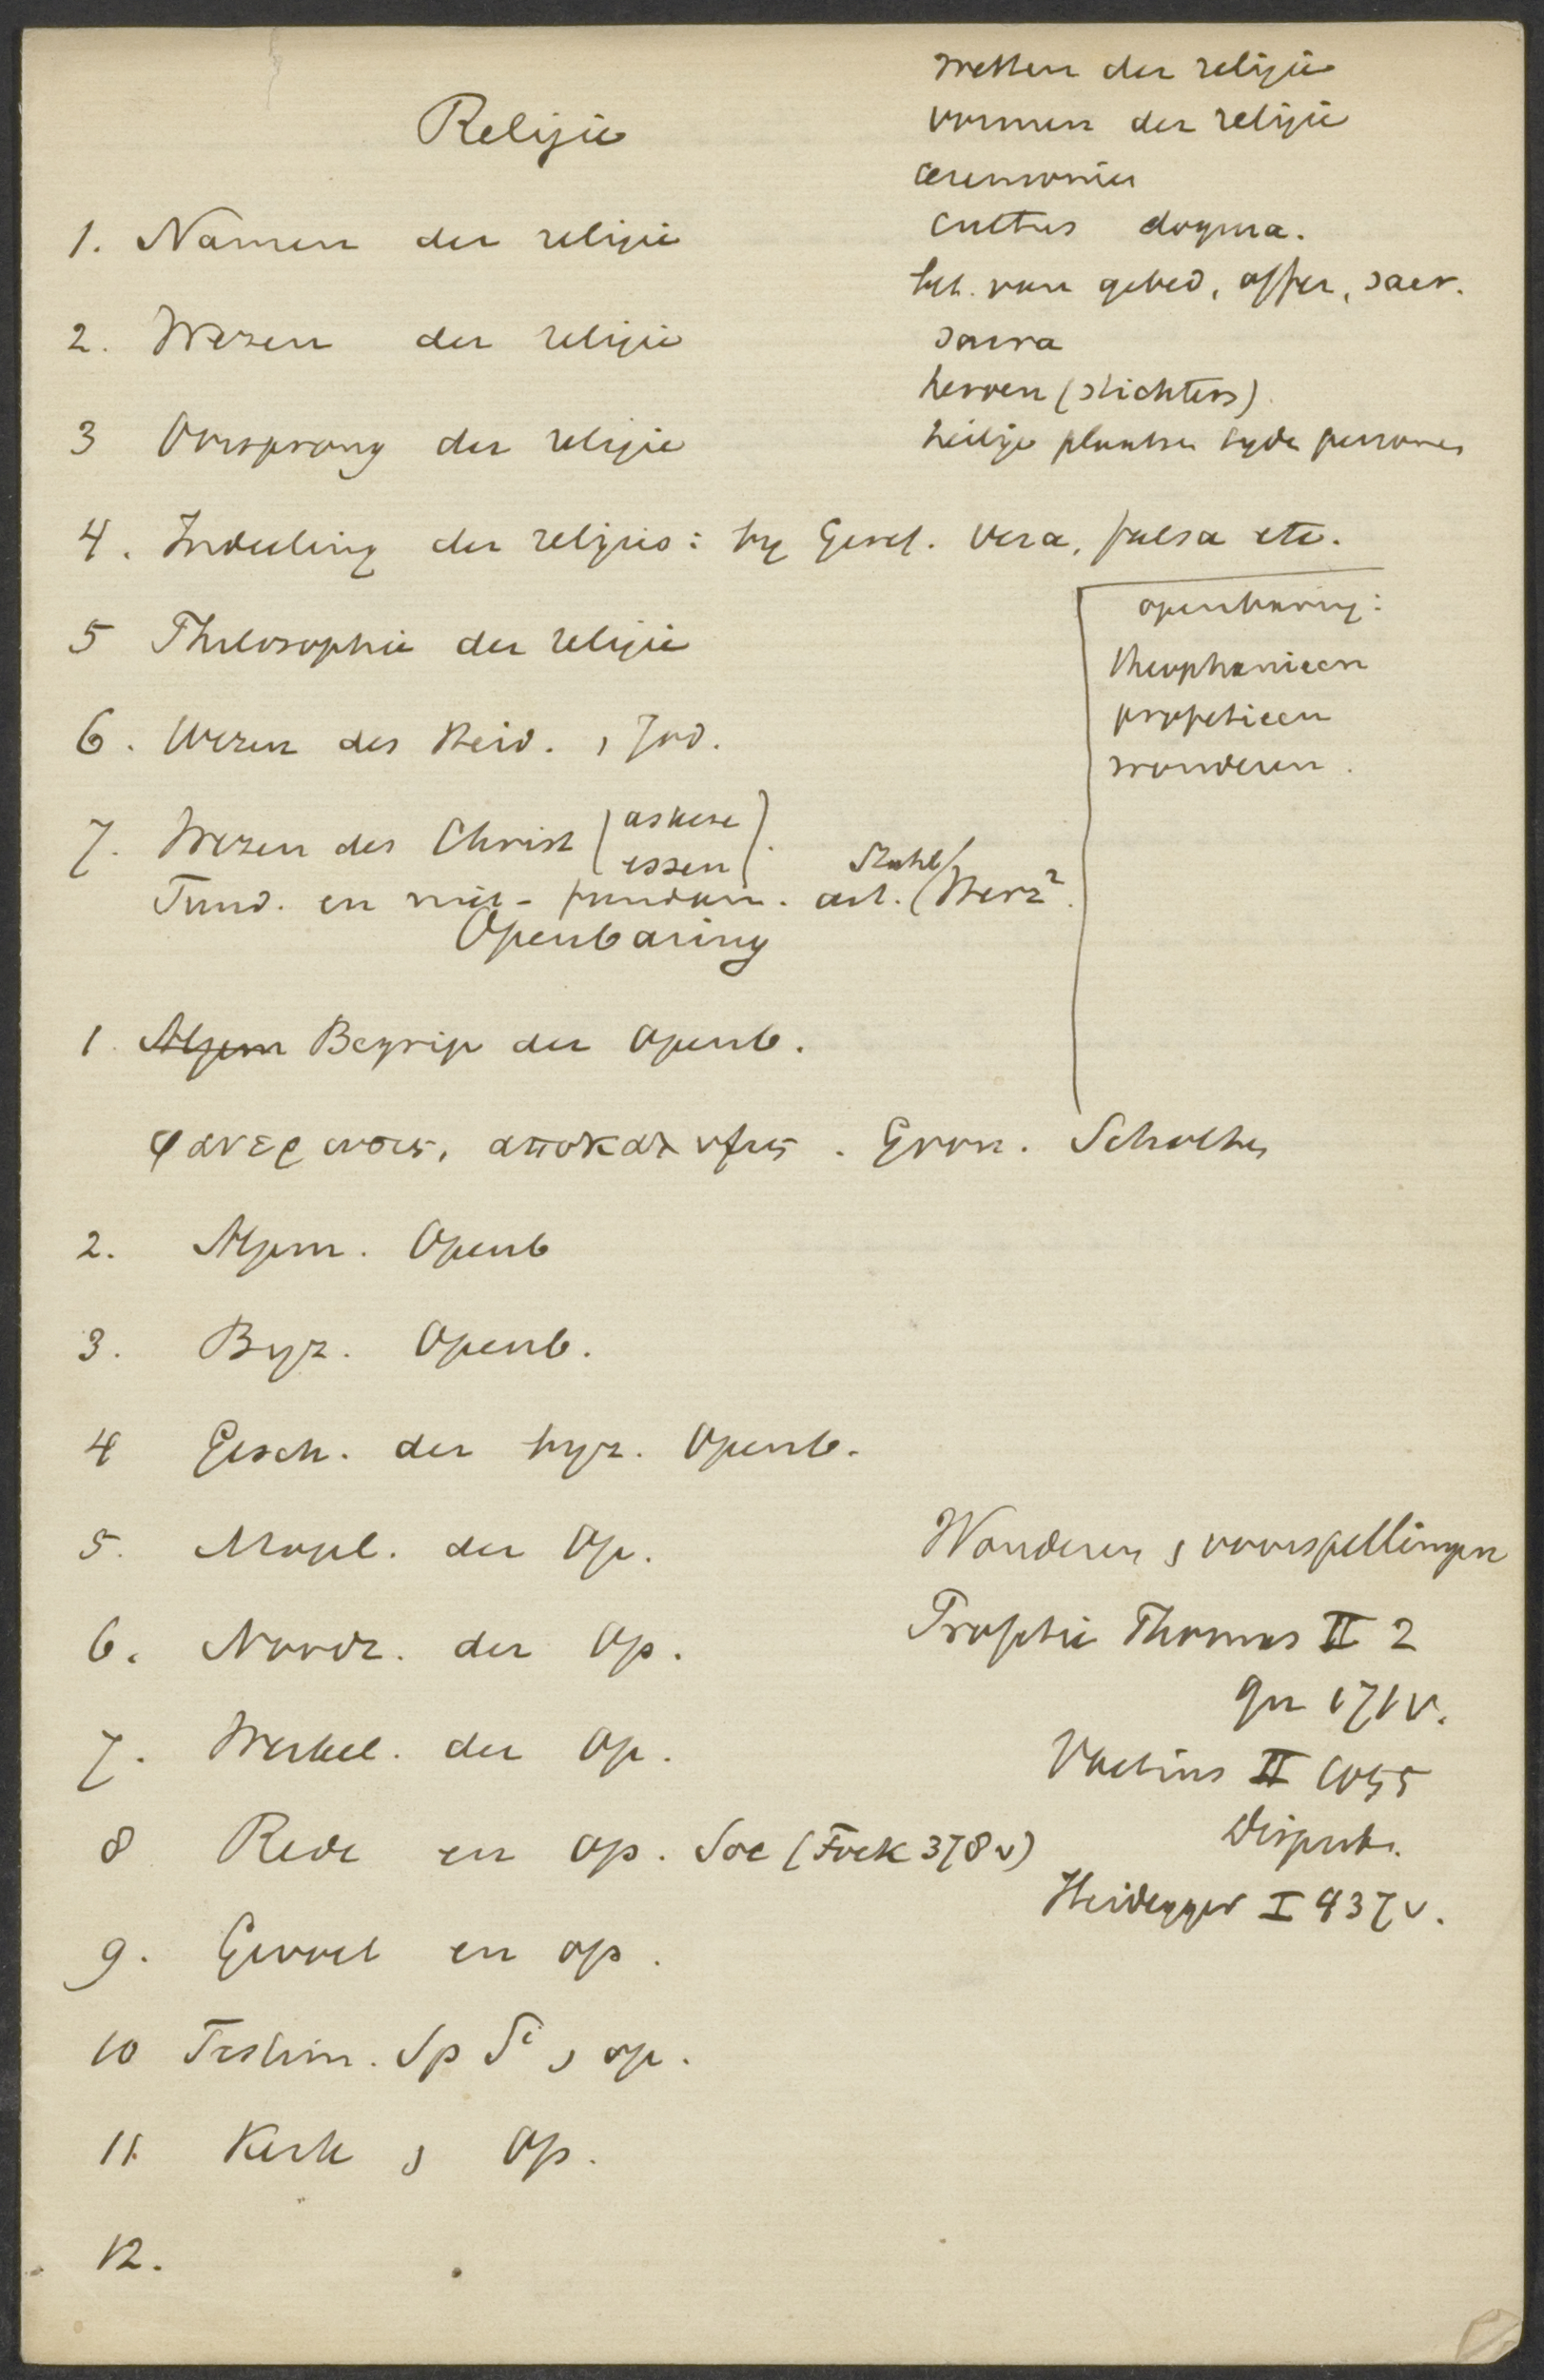 Religie
1. Namen der religie
2. Wezen der religie
3 Oorsprong der religie
4. Indeeling der religies: by Geref. vera, falsa etc.
5 Philosophie der religie
6. Wezen des Heid. , Jod.
7. Wezen des Christ (askese
essen).
Fund. en niet-fundam. art. (Stahl/ Herz²).
wetten der religie
vormen der religie
ceremonien
cultus dogma.
bet. van gebed, offer, sacr.
sacra
heroen (stichters)
heilige plaatsen tyden personen
openbaring:
theophanieen
profetieen
wonderen.
Openbaring
1 Algem Begrip der Openb.
φανερωσις, αποκαλυψις. Gron. Scholten
2. Algem. Openb
3. Byz. Openb.
4 Gesch. der byz. Openb.
5. Mogel. der Op.
6. Noodz. der Op.
7. Werkel. der Op.
8 Rede en Op. Soc (Fock 378 v)
9. Geloof en op.
10 Testim. Sp Si , op.
11. Kerk , Op.
12.
Wonderen , voorspellingen
Profetie Thomas II 2
qu 171 v.
Voetius II 1055
Disput.
Heidegger I 437 v.